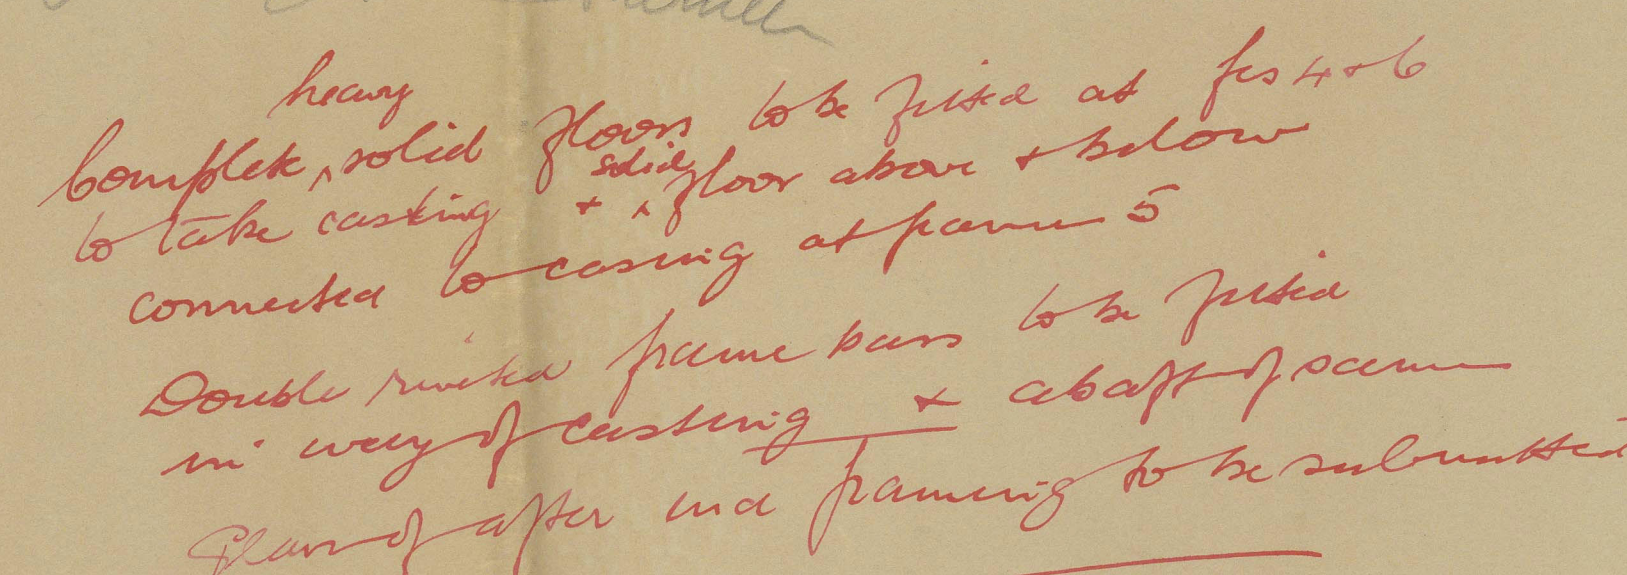 Complete ^heavy solid floors to be fitted at frs 4 + 6
to take casting + ^solid floor above + below
connected to casting at frame 5
Double riveted frame bars to be fitted
in way of casting + abaft of same
Plan of after end framing to be submitted